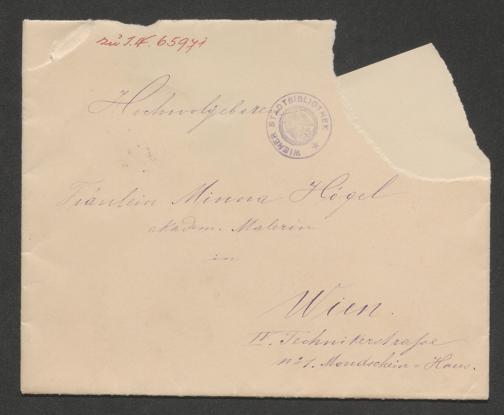 zu I.N. 65971
Hochwolgeboren
WIENER STADTBIBLIOTHEK
Fräulein Minna Högel
akadem. Malerin
in
Wien.
IV. Technikerstraße
No 1. Mondschein-Haus.